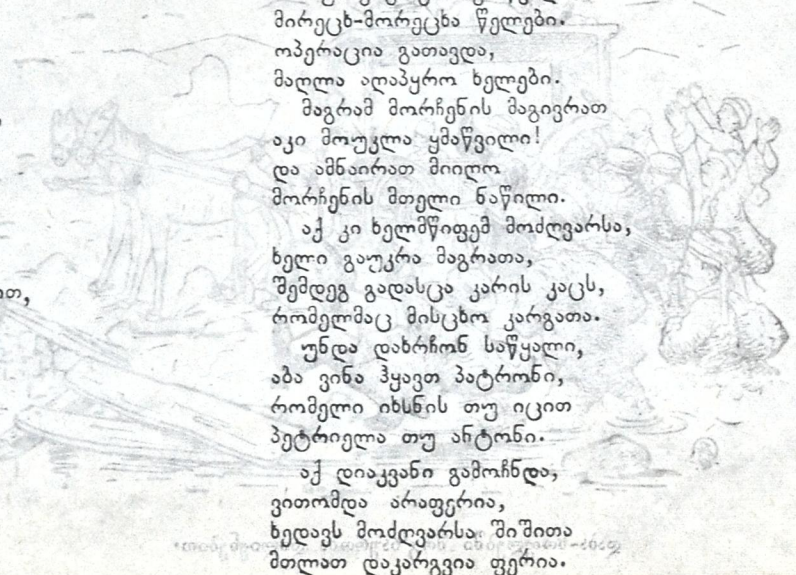 მირეცხ-მორეცხა წელები.
ოპერაცია გათავდა,
მაღლა აღაპყრო ხელები.
მაგრამ მორჩენის მაგივრათ
აკი მოუკლა ყმაწვილი!
და ამნაირათ მიიღო
მორჩენის მთელი ნაწილი.
აქ კი ხელმწიფემ მოძღვარსა,
ხელი გაუკრა მაგრათა,
შემდეგ გადასცა კარის კაცს,
რომელმაც მისცხო კარგათა.
უნდა დახრჩონ საწყალი,
აბა ვინა ჰყავთ პატრონი,
რომელი იხსნის თუ იცით
პეტრიელა თუ ანტონი.
აქ დიაკვანი გამოჩნდა,
ვითომდა არაფერია,
ხედავს მოძღვარსა შიშითა
მთლათ დაკარგვია ფერია.